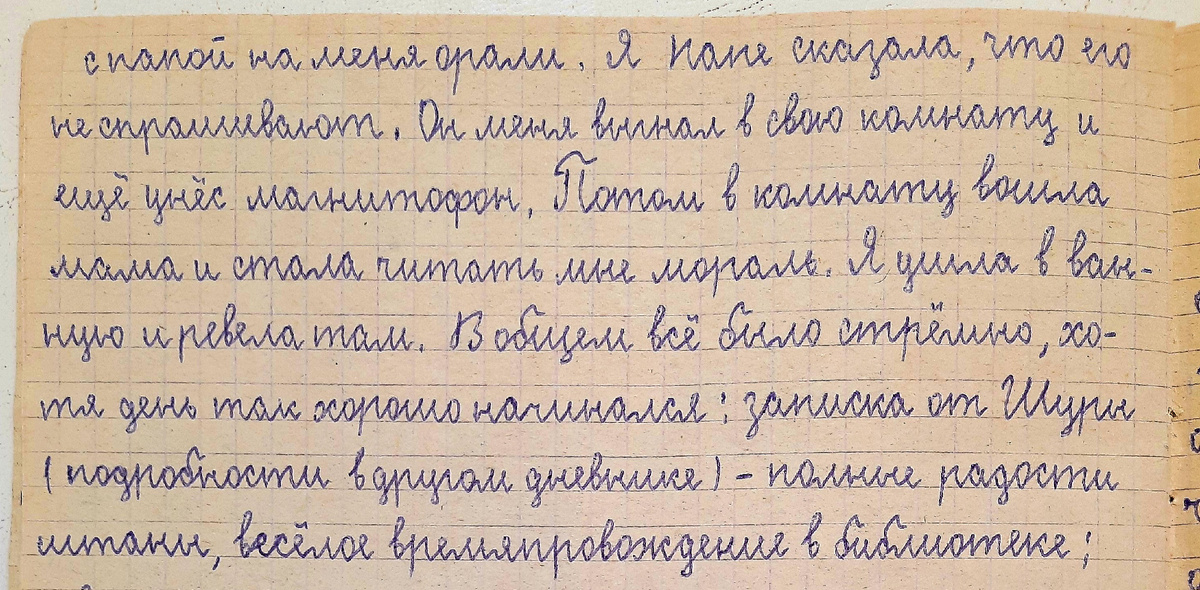 с папой на меня орали. Я папе сказала, что его
не спрашивают. Он меня выгнал в свою комнату и
ещё унёс магнитофон. Потом в комнату вошла
мама и стала читать мне мораль. Я ушла в ван-
ную и ревела там. В общем всё было стрёмно, хо-
тя день так хорошо начинался: записка от Шуры
(подробности в другом дневнике) - полные радости
штаны, весёлое времяпровождение в библиотеке;